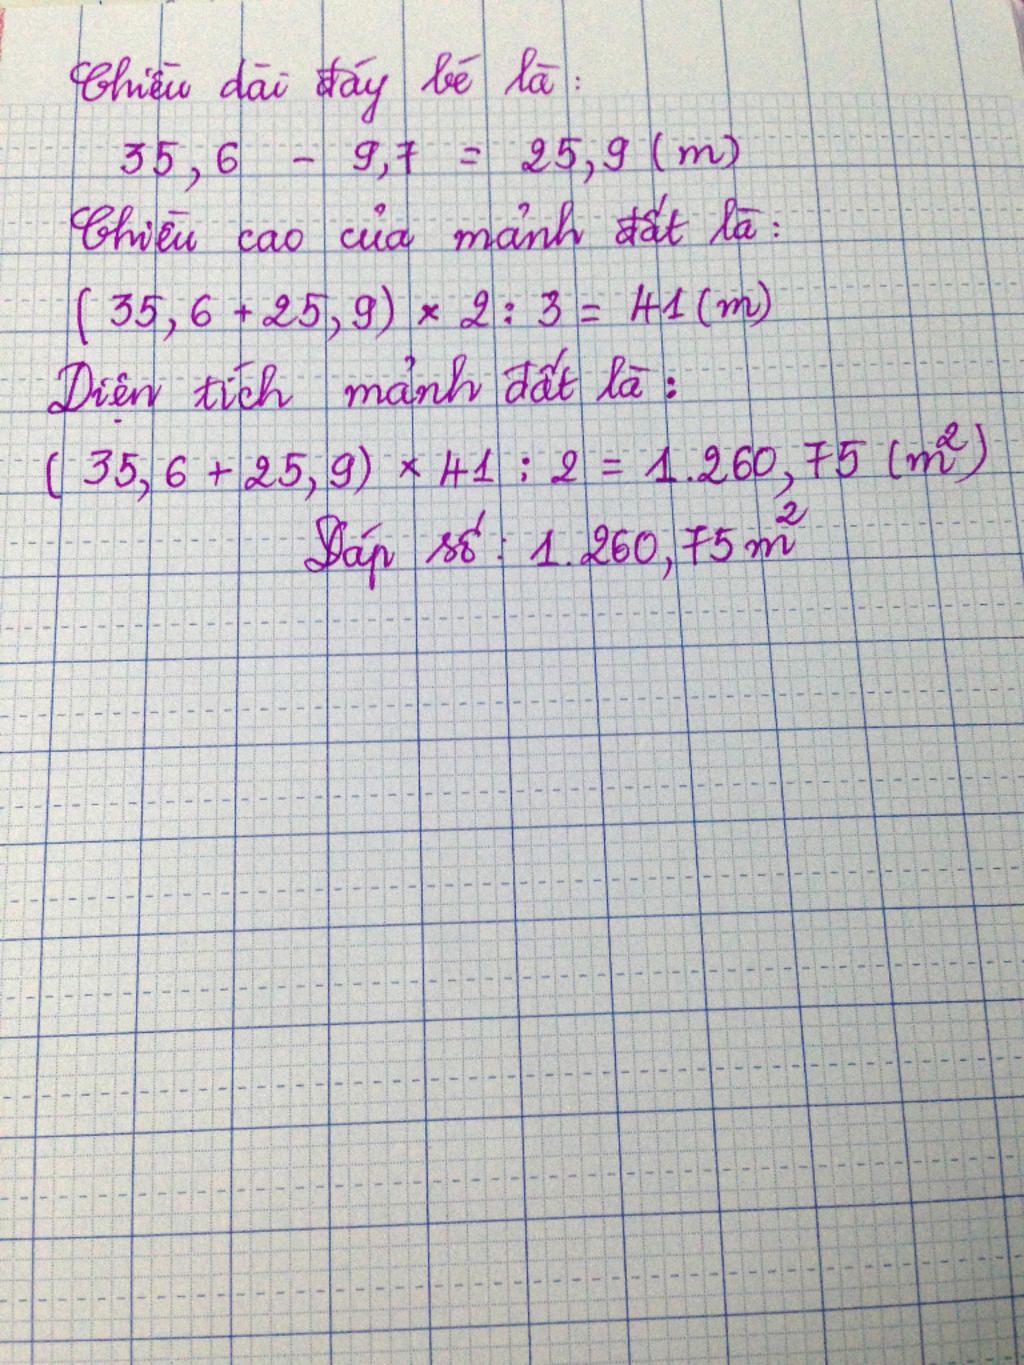 Chiều dài đáy bé là:
35,6 - 9,7 = 25,9 (m)
Chiều cao của mảnh đất là:
(35,6 + 25,9) × 2 : 3 = 41 (m)
Diện tích mảnh đất là:
(35,6 + 25,9) × 41 : 2 = 1.260,75 (m²)
Đáp số: 1.260,75 m²